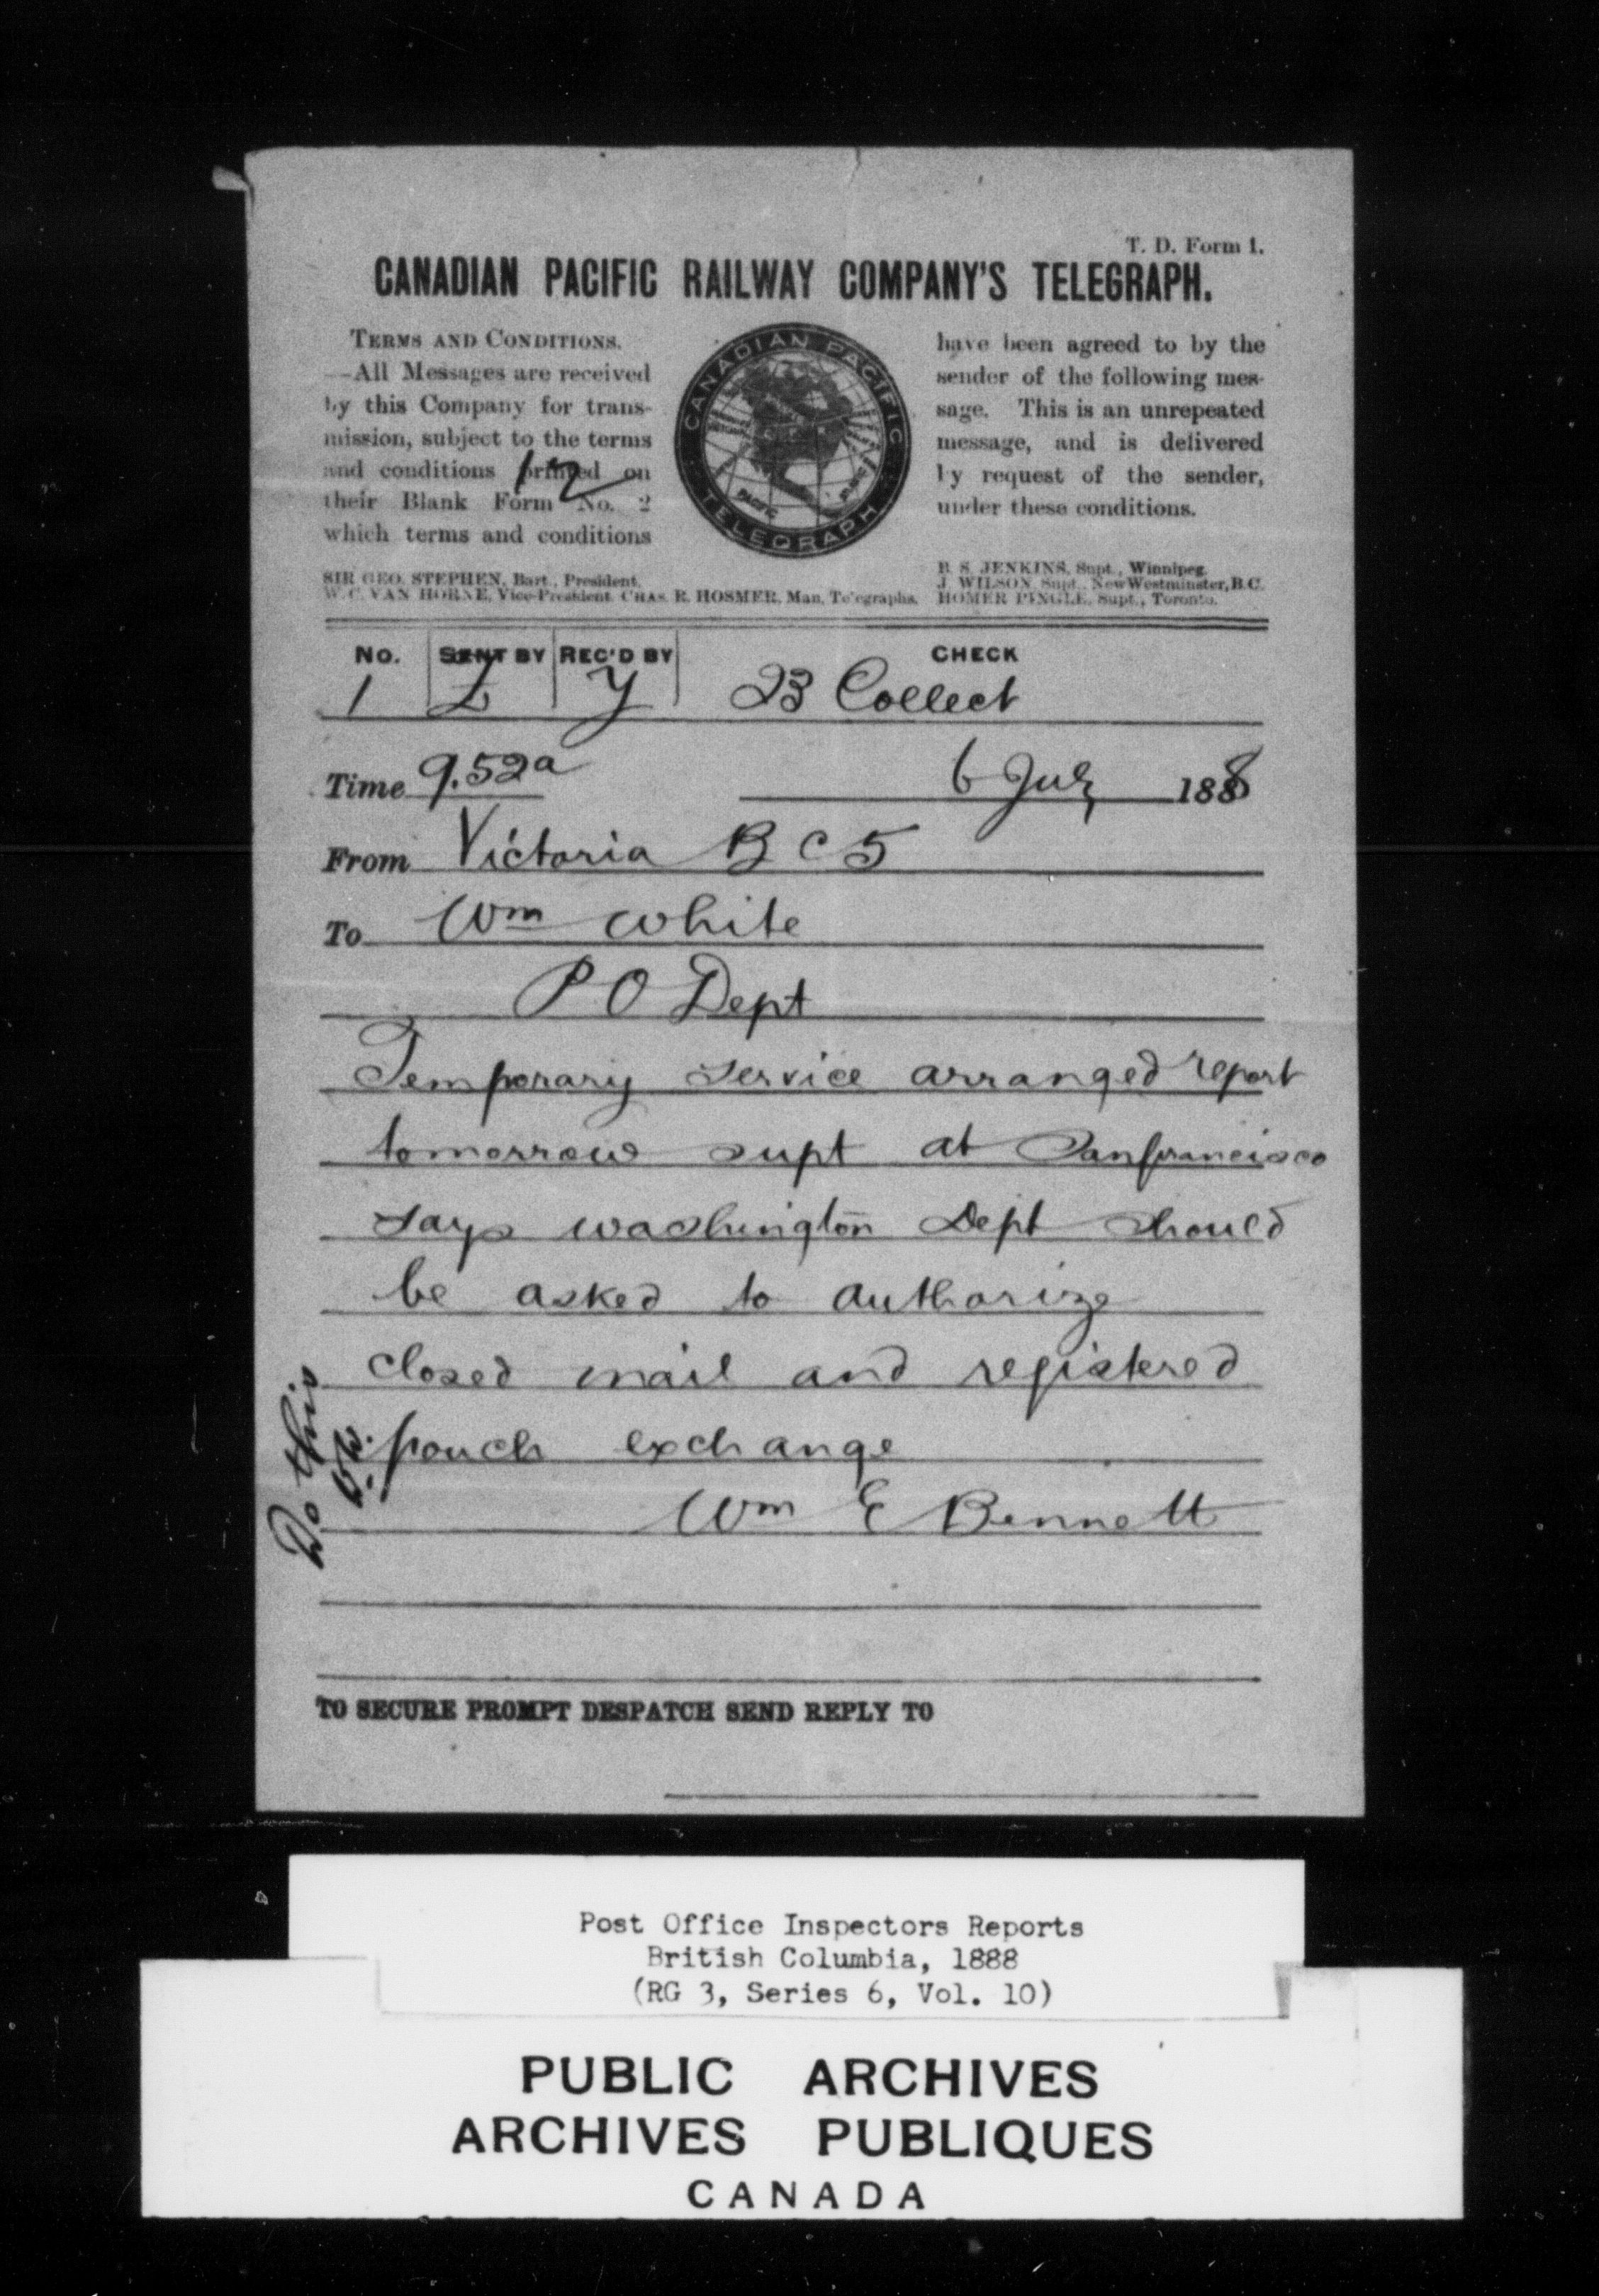 T. D. Form 1.
CANADIAN PACIFIC RAILWAY COMPANY'S TELEGRAPH.
TERMS AND CONDITIONS.
—All Messages are received
by this Company for trans-
mission, subject to the terms
and conditions printed on
their Blank Form No. 2
which terms and conditions
12
CANADIAN PACIFIC
TELEGRAPH
PACIFIC
have been agreed to by the
sender of the following mes-
sage. This is an unrepeated
message, and is delivered
by request of the sender,
under these conditions.
SIR GEO. STEPHEN, Bart., President.
W. C. VAN HORNE, Vice-President. CHAS. R. HOSMER, Man. Telegraphs.
B. S. JENKINS, Supt., Winnipeg.
J. WILSON, Supt., New Westminster, B.C.
HOMER PINGLE, Supt., Toronto.
No. SENT BY REC'D BY CHECK
1 Y 23 Collect
Time 9.52a 6 July 1888
From Victoria B C 5
To Wm White
P O Dept
Temporary service arranged report
tomorrow supt at Sanfrancisco
says washington Dept should
be asked to authorize
closed mail and registered
pouch exchange
Wm E Bennett
Do this
TO SECURE PROMPT DESPATCH SEND REPLY TO
Post Office Inspectors Reports
British Columbia, 1888
(RG 3, Series 6, Vol. 10)
PUBLIC ARCHIVES
ARCHIVES PUBLIQUES
CANADA